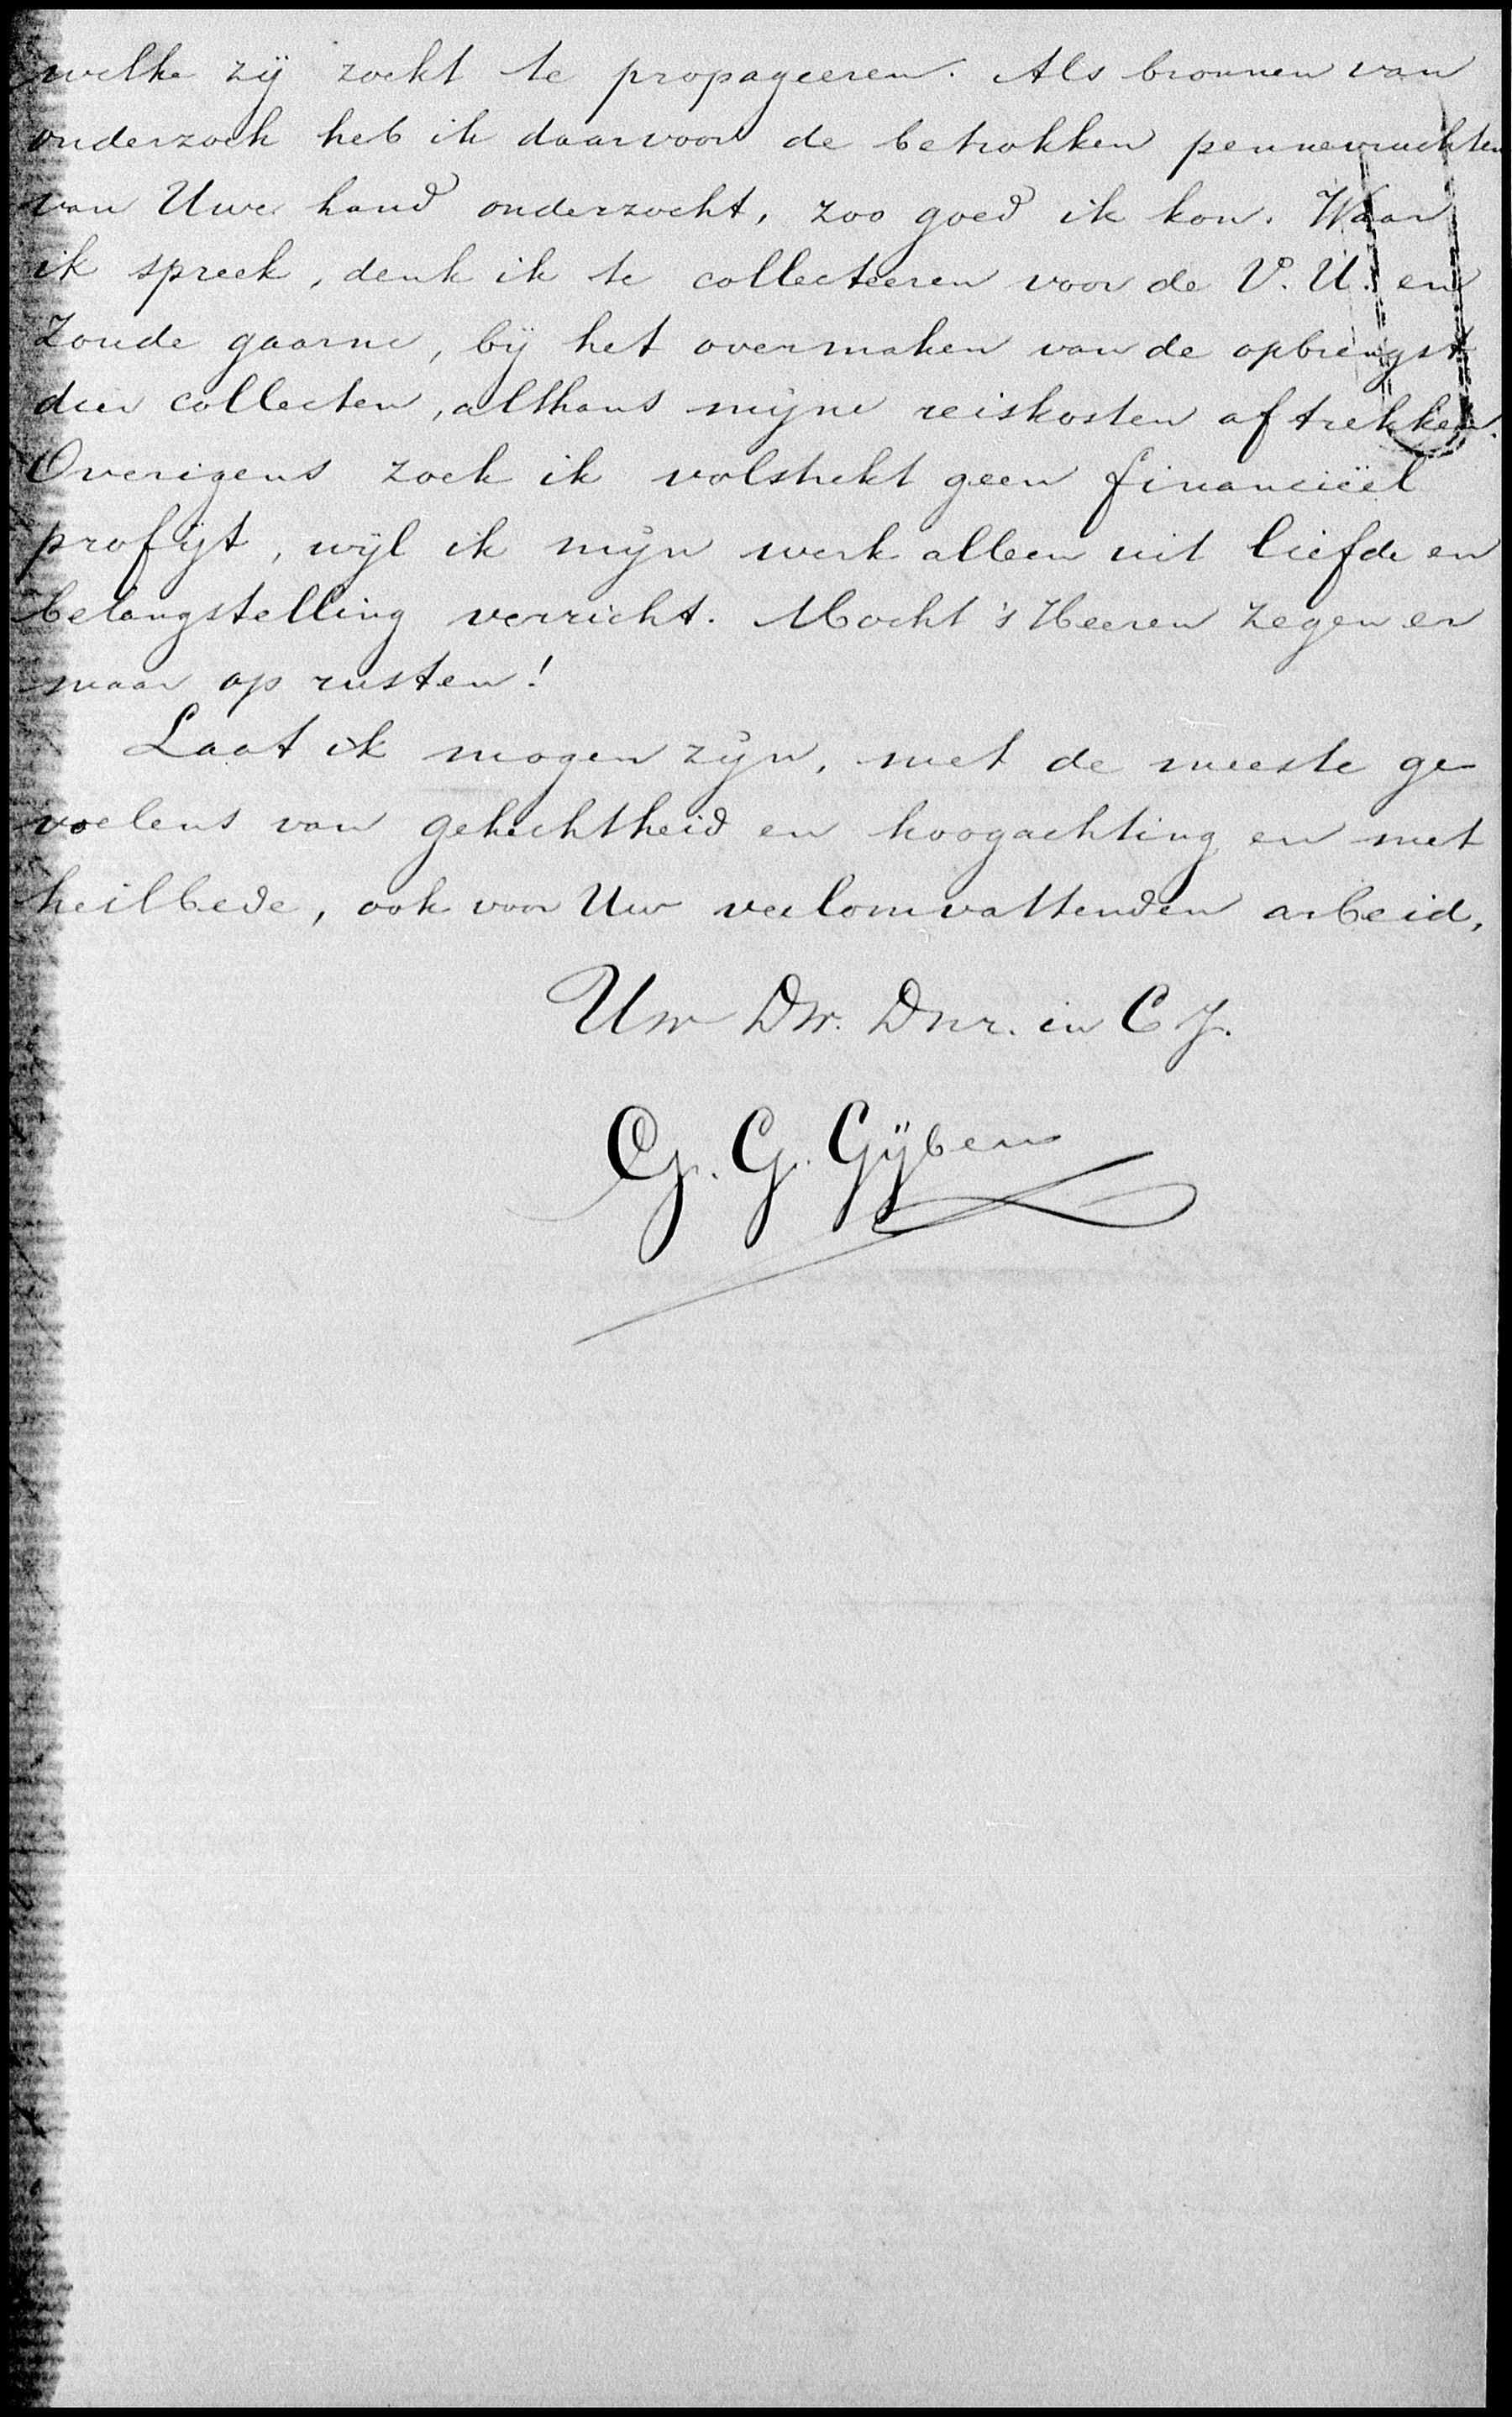 welke zij zoekt te propageeren. Als bronnen van
onderzoek heb ik daarvoor de betrokken pennevruchten
van Uwe hand onderzocht, zoo goed ik kon. Waar
ik spreek, denk ik te collecteeren voor de V. U. en
zoude gaarne, bij het overmaken van de opbrengst
dier collecten, althans mijne reiskosten aftrekken.
Overigens zoek ik volstrekt geen financiëel
profijt, wijl ik mijn werk alleen uit liefde en
belangstelling verricht. Mocht 's Heeren zegen er
maar op rusten!
Laat ik mogen zijn, met de meeste ge
voelens van gehechtheid en hoogachting en met
heilbede, ook voor Uw veelomvattenden arbeid,
Uw Dw. Dnr. in C J.
G. G. Gijben